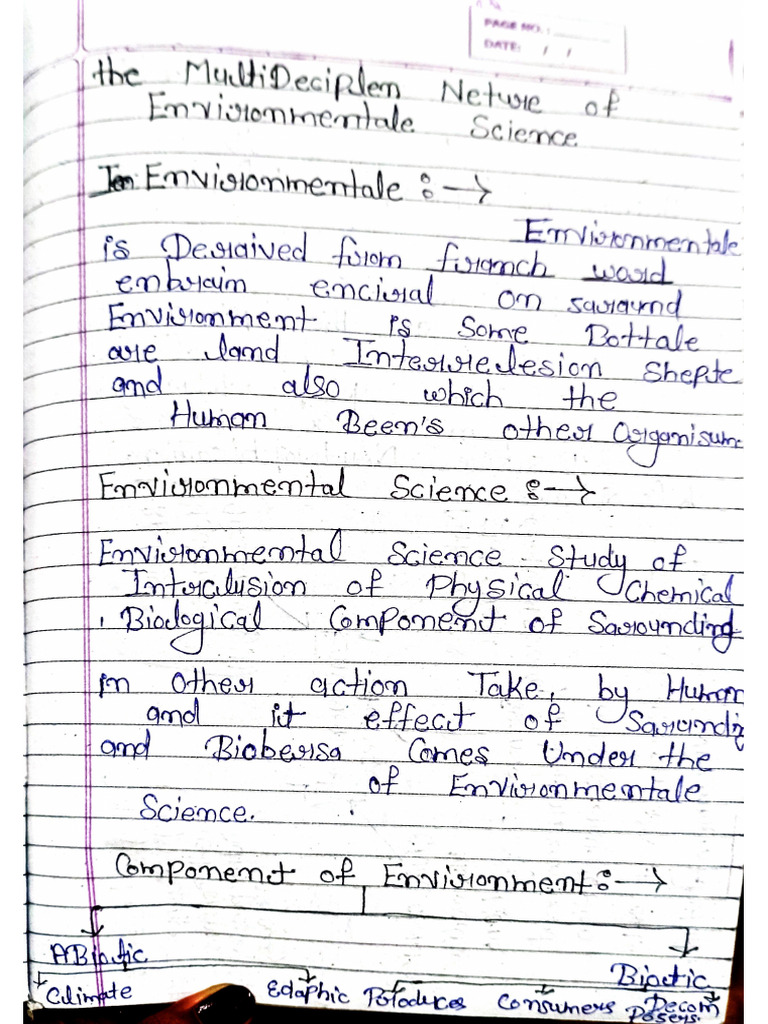 PAGE NO.:
DATE: / /
the MultiDeciplen Neture of
Environmentale Science
Environmentale :→
Environmentale
is Deraived from franch ward
enbrain enciral on saraurnd
Environment is Some Dottale
are land Interrelesion Shepte
and also which the
Human Been's other Organisum
Environmental Science :→
Environmental Science Study of
Intralusion of Physical Chemical
, Biological Component of Sarounding
in other action Take, by Human
and it effect of Sarundig
and Biobersa Comes Under the
of Environmentale
Science.
Componenct of Environment :→
ABiotic
Biotic
Climate Edaphic Potoduces Consumers Decom
posers.